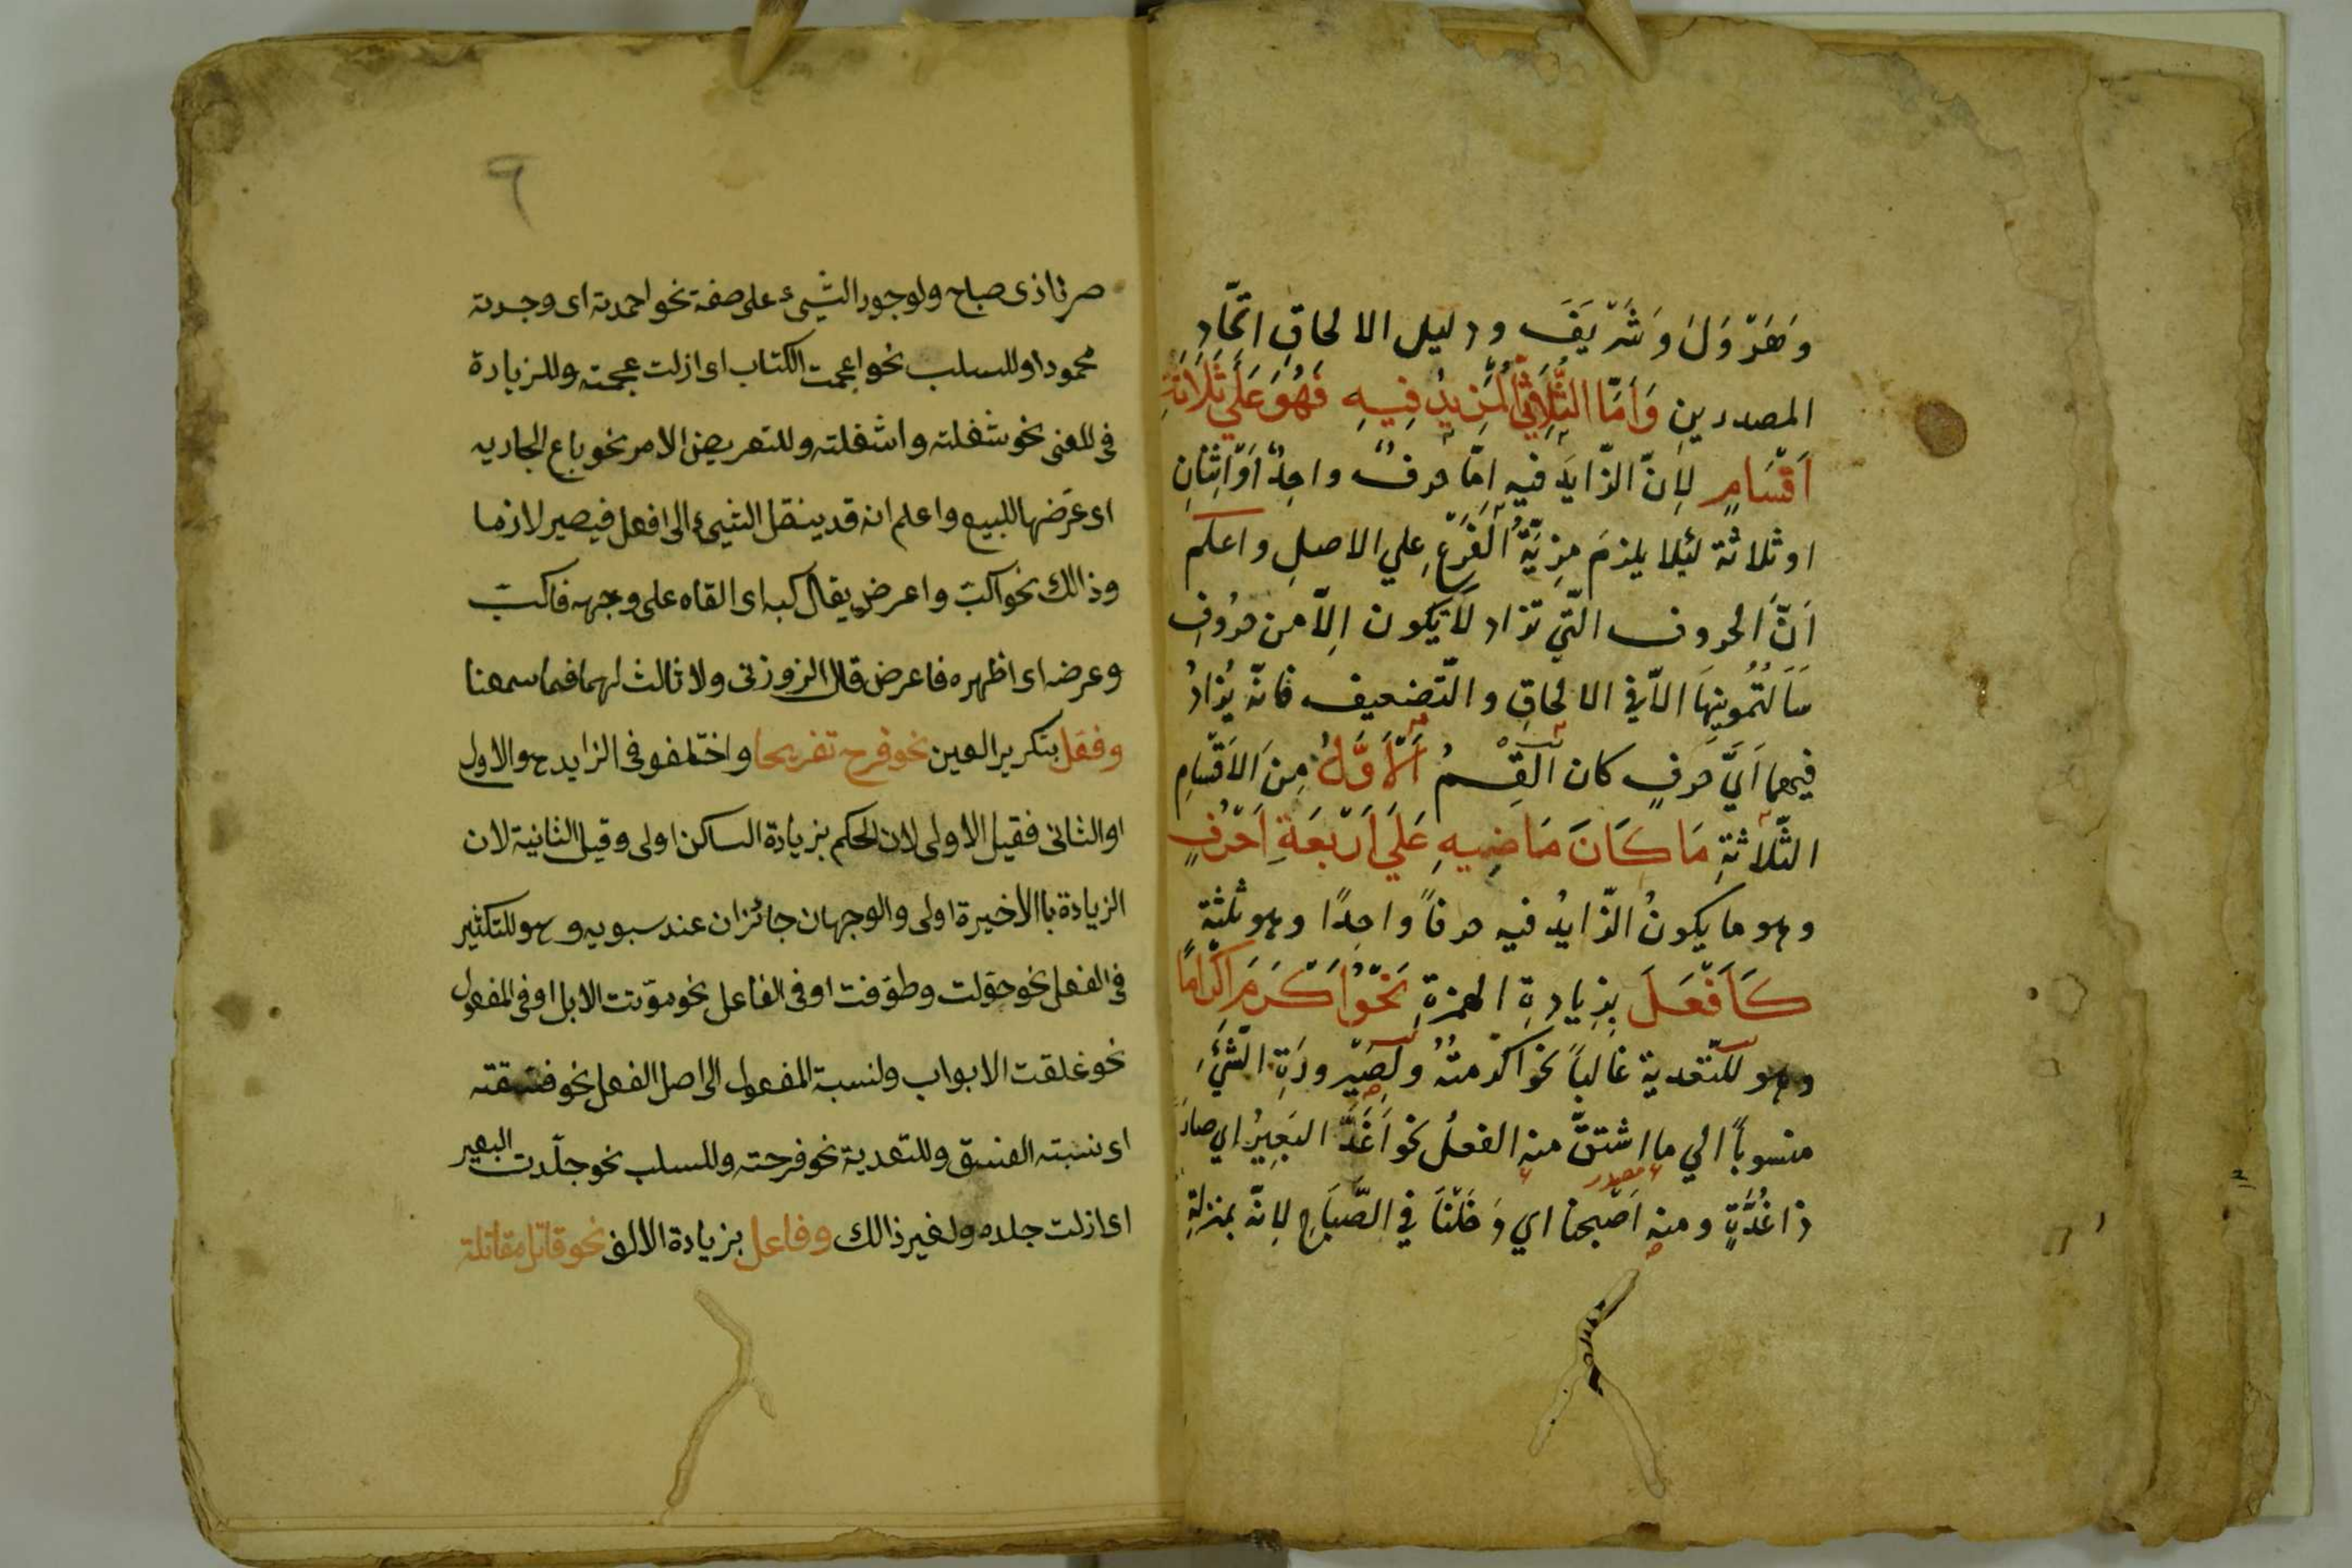 وَهَرْوَلَ وَشَرْيَفَ ودليل الالحاقِ اتّحادِ
المصدرينِ وَاَمَّا الثُّلَاثِيُّ الْمَزِيدُ فِيهِ فَهُوَ عَلَي ثَلَاثَةِ
اَقْسَامٍ لِاَنّ الزّايدَ فيهِ اِمّا حرفٌ واحِدٌ اَوْ اثنانِ
او ثلاثة لئلا يلزمَ مِزيّةُ الفَرْعِ علي الاصلِ واعلم
اَنَّ الحروف الّتي تزاد لا تكون اِلّا من حرُوفِ
سَاَلتُمُونِيهَا الّا في الالحاقِ والتّضعيف فانّه يُزادُ
فيهما اَيَّ حَرفٍ كان القِسمُ اَلْاَوَّلُ مِنَ الاَقْسامِ
الثّلاثةِ مَا كَانَ مَاضِيهِ عَلَي اَرْبَعَةِ اَحْرُفٍ
وهو ما يكونُ الزّايدُ فيه حرفاً واحِدًا وهو ثلثة
كَاَفْعَلَ بِزِيادةِ الهمزةِ نَحْوُ اَكْرَمَ اِكْرَامًا
وهو للتعدية غالباً نحو اكرمتهُ ولصَيْرورَةِ الشَّئِ
منسوباً الي ما اشتقّ منه الفعلُ نحو اَغَدَّ البَعِيرُ اي صارَ
مصدر
ذا غُدَّةٍ ومنه اَصْبحنا اي دَخَلْنَا فِي الصَّبَاحِ لِانّه بمنزلةِ
٩
صرنا ذى صباح ولوجود الشيىء على صفة نحو احمدته اى وجدته
محمودا وللسلب نحو اعجمت الكتاب اى ازلت عجمته وللزيادة
فى المعنى نحو شغلته واشغلته وللتعريض الامر نحو باع الجاريه
اى عرّضها للبيع واعلم انه قد ينقل الشيىء الى افعل فيصير لازما
وذالك نحو اكبّ واعرض يقال كبه اى القاه على وجهه فاكبّ
وعرضه اى اظهره فاعرض قال الزوزنى ولا ثالث لهما فيما سمعنا
وفعّل بتكرير العين نحو فرح تفريحا واختلفو فى الزايد هو الاول
او الثانى فقيل الاولى لان الحكم بزيادة الساكن اولى وقيل الثانية لان
الزيادة باالاخيرة اولى والوجهان جائزان عند سبويه وهو للتكثير
فى الفعل نحو جوّلت وطوّفت او فى الفاعل نحو موّتت الابل او فى المفعول
نحو غلقت الابواب ولنسبة المفعول الى اصل الفعل نحو فسقته
اى نسبته الفسق وللتعدية نحو فرحته وللسلب نحو جلّدت البعير
اى ازلت جلده ولغير ذالك وفاعل بزيادة الالف نحو قاتل مقاتلة